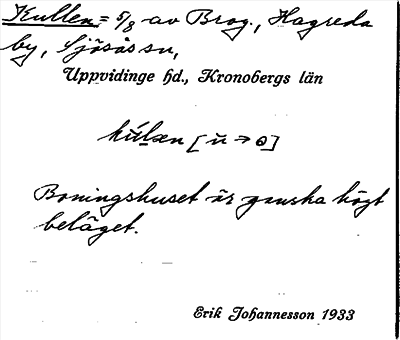 Kullen = 5/8 av Brog., Hagreda
by, Sjösås sn,
Uppvidinge hd., Kronobergs län
kúlæn [u → ɵ]
Boningshuset är ganska högt
beläget.
Erik Johannesson 1933